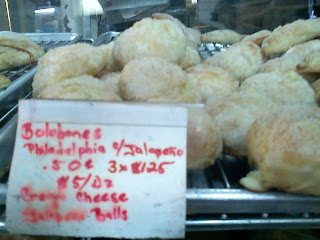 Bolobanes
Philadelphia c/Jalapeño
.50¢ 3x$1.25
$5/Dz
Cream cheese
Jalapeno Balls